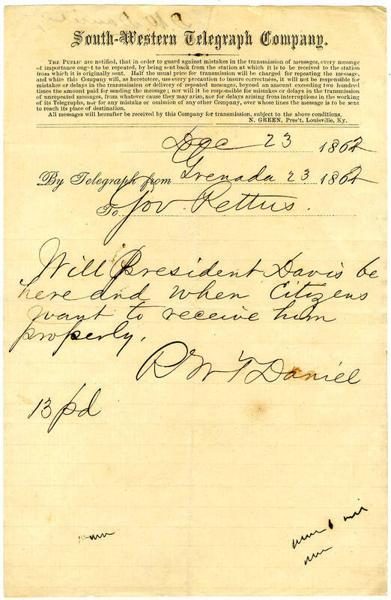 South-Western Telegraph Company.
THE PUBLIC are notified, that in order to guard against mistakes in the transmission of messages, every message
of importance ought to be repeated, by being sent back from the station at which it is to be received to the station
from which it is originally sent. Half the usual price for transmission will be charged for repeating the message,
and while this Company will, as heretofore, use every precaution to insure correctness, it will not be responsible for
mistakes or delays in the transmission or delivery of repeated messages, beyond an amount exceeding two hundred
times the amount paid for sending the message; nor will it be responsible for mistakes or delays in the transmission of
unrepeated messages, from whatever cause they may arise, nor for delays arising from interruptions in the working
of its Telegraphs, nor for any mistake or omission of any other Company, over whose lines the message is to be sent
to reach its place of destination.
All messages will hereafter be received by this Company for transmission, subject to the above conditions.
N. GREEN, Pres't, Louisville, Ky.
Dec 23 1862
By Telegraph from Grenada 23 1862
To Gov Pettus.
Will President Davis be
here and when Citizens
want to receive him
properly.
R W T Daniel
13 pd